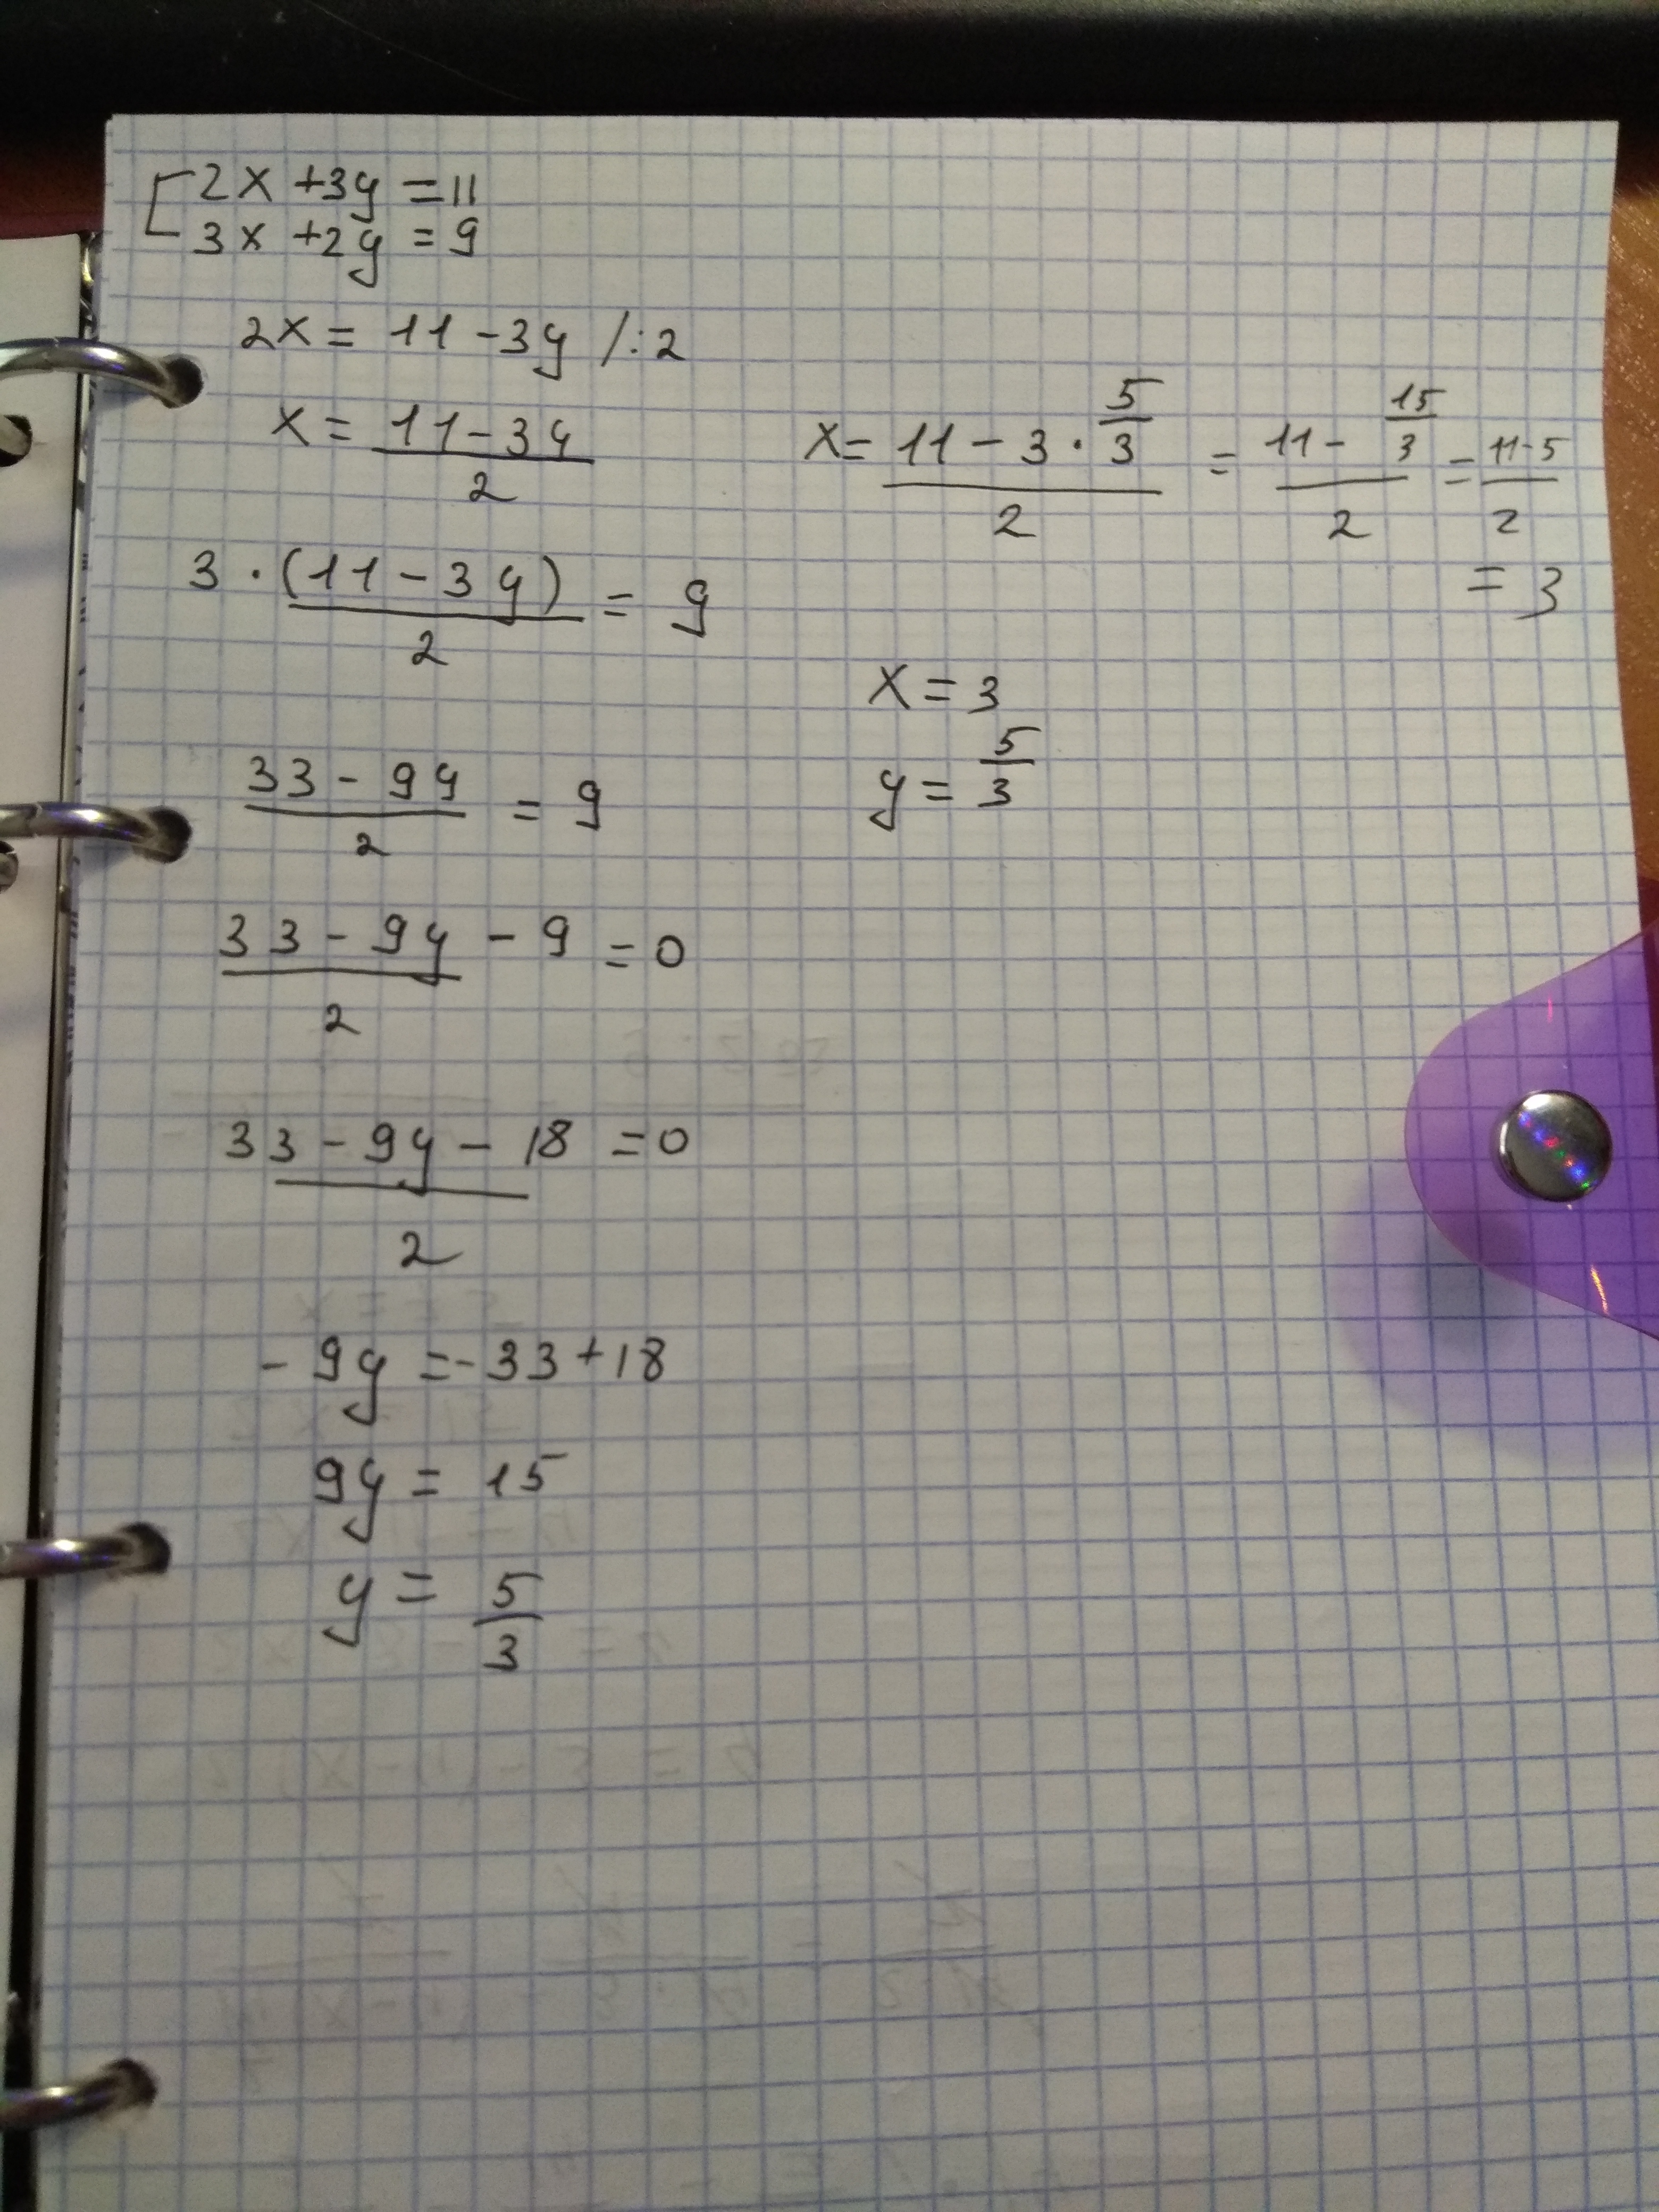 2x +3y =11
3x +2y = 9
2x = 11 -3y /:2
x = (11-3y)/2
3 · (11 - 3y)/2 = 9
(33 - 9y)/2 = 9
(33 - 9y)/2 - 9 = 0
(33 - 9y - 18)/2 = 0
- 9y = -33 +18
9y = 15
y = 5/3
x = (11 - 3 · 5/3)/2 = (11 - 15/3)/2 = (11-5)/2
= 3
x = 3
y = 5/3